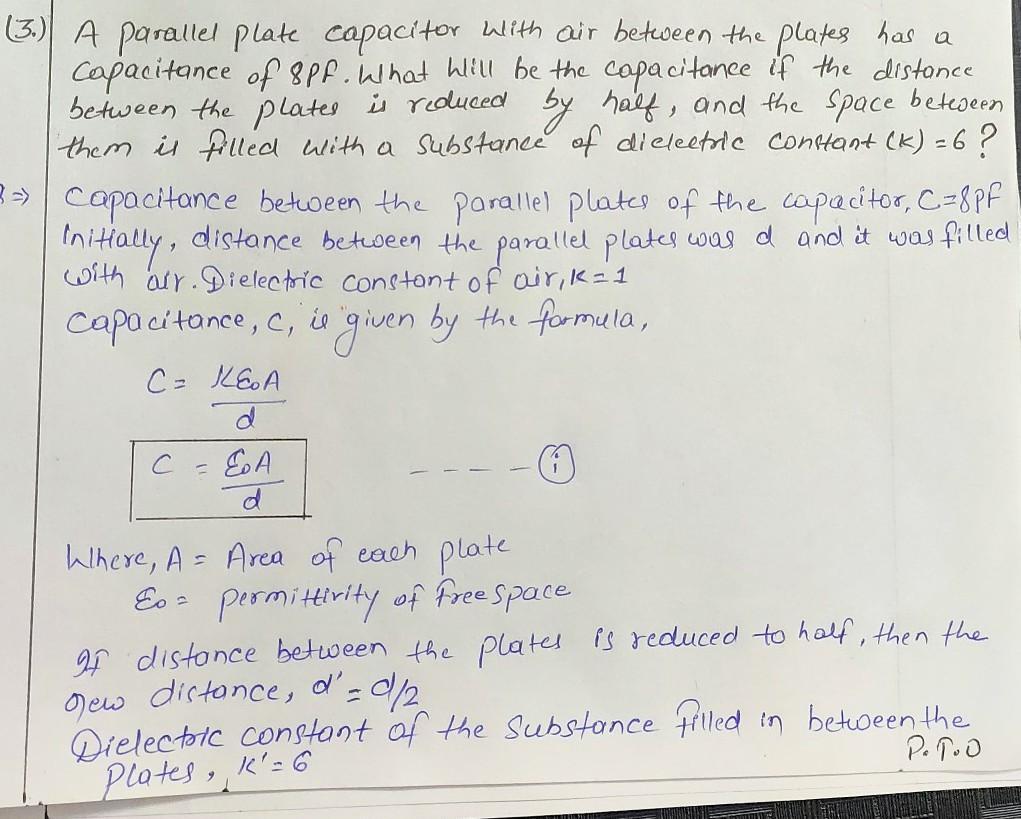 (3.) A parallel plate capacitor with air between the plates has a
capacitance of 8PF. What will be the capacitance if the distance
between the plates is reduced by half, and the space between
them is filled with a substance of dielectric constant (k) = 6?
⇒ Capacitance between the parallel plates of the capacitor, C=8PF
Initially, distance between the parallel plates was d and it was filled
with air. Dielectric constant of air, k=1
Capacitance, C, is given by the formula,
C = KƐ₀A
d
C = Ɛ₀A
d
----- (i)
Where, A = Area of each plate
Ɛ₀ = permittivity of free space
If distance between the plates is reduced to half, then the
new distance, d' = d/2
Dielectric constant of the substance filled in between the
plates, K' = 6
P.T.O